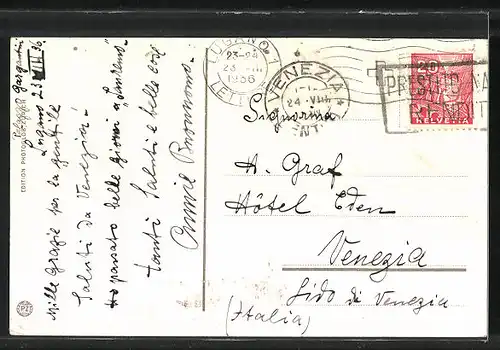 Lugano 23 VIII 36
Mille grazie per la gentile
Saluti da Venezia.
Ho passato belle giorni a
tanti saluti e belle cose
EDITION PHOTOGLOB
LUGANO 1
23-24
23. VIII
1936
LETTERE
VENEZIA
24 VIII
PRESTITO NA
HELVETIA
Signorina
H. Graf
Hôtel Eden
Venezia
Lido di Venezia
(Italia)
PZ